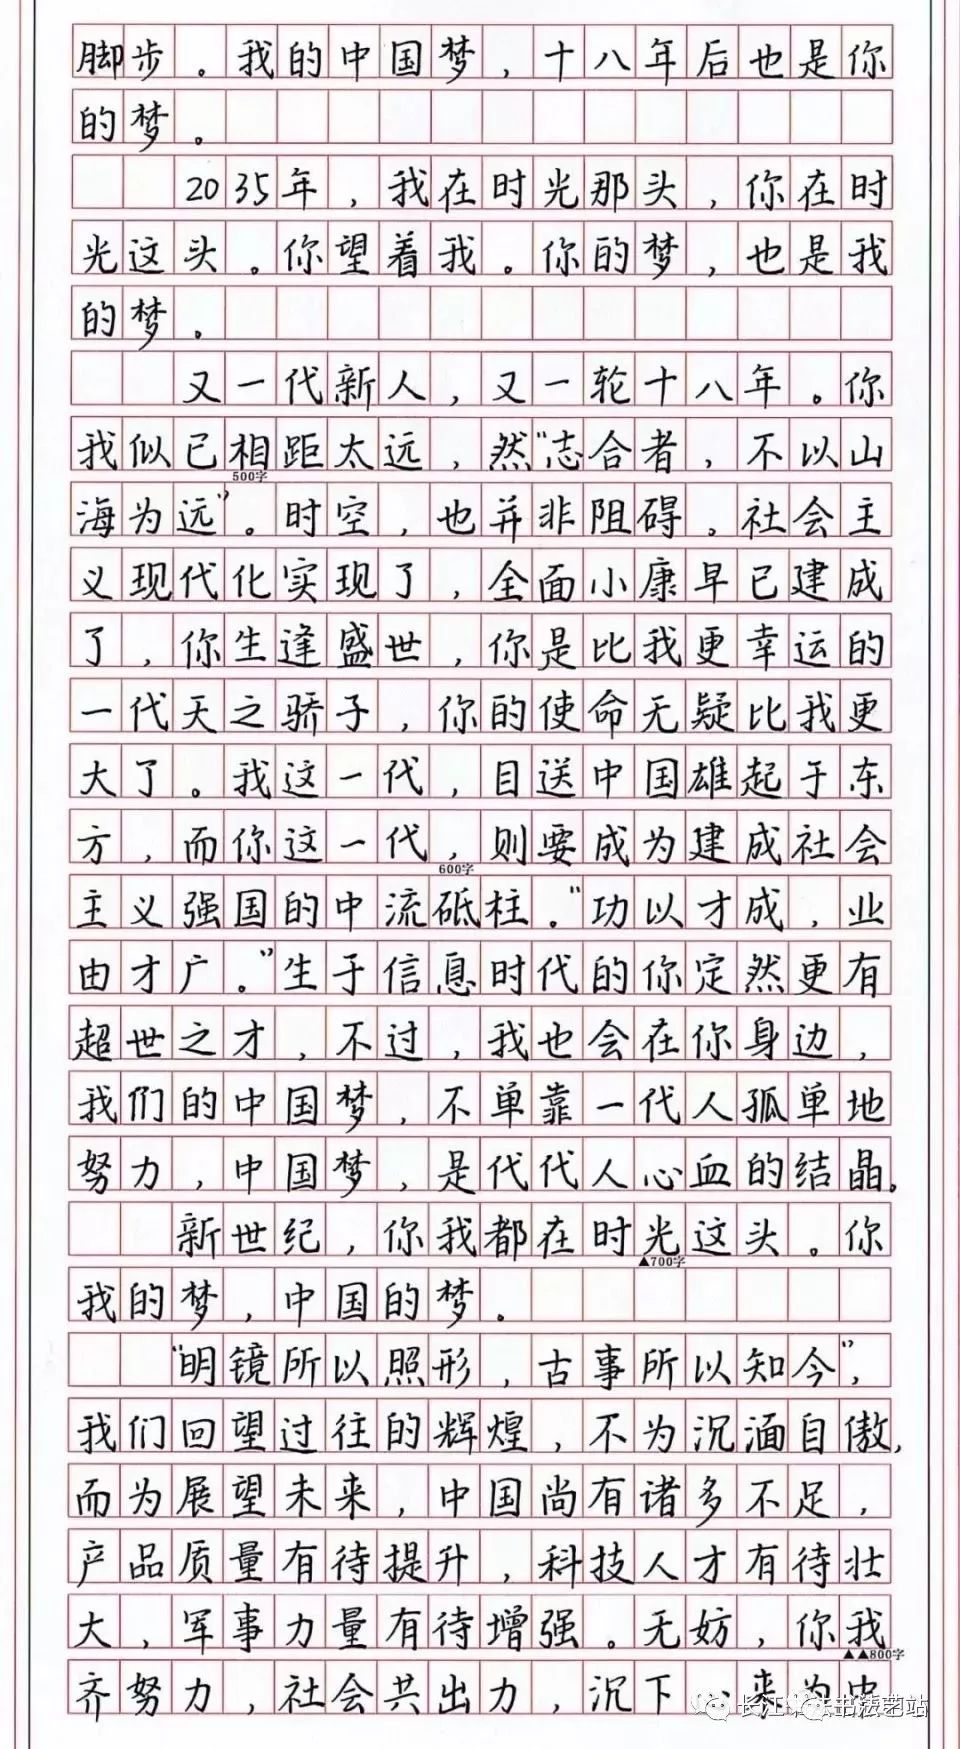 脚步。我的中国梦，十八年后也是你
的梦。
2035年，我在时光那头，你在时
光这头。你望着我。你的梦，也是我
的梦。
又一代新人，又一轮十八年。你
我似已相距太远，然“志合者，不以山
500字
海为远”。时空，也并非阻碍。社会主
义现代化实现了，全面小康早已建成
了，你生逢盛世，你是比我更幸运的
一代天之骄子，你的使命无疑比我更
大了。我这一代，目送中国雄起于东
方，而你这一代，则要成为建成社会
600字
主义强国的中流砥柱。“功以才成，业
由才广。”生于信息时代的你定然更有
超世之才，不过，我也会在你身边，
我们的中国梦，不单靠一代人孤单地
努力，中国梦，是代代人心血的结晶。
新世纪，你我都在时光这头。你
▲700字
我的梦，中国的梦。
“明镜所以照形，古事所以知今”，
我们回望过往的辉煌，不为沉湎自傲，
而为展望未来，中国尚有诸多不足，
产品质量有待提升，科技人才有待壮
大，军事力量有待增强。无妨，你我
▲▲800字
齐努力，社会共出力，沉下 来为中
长江 书法艺站